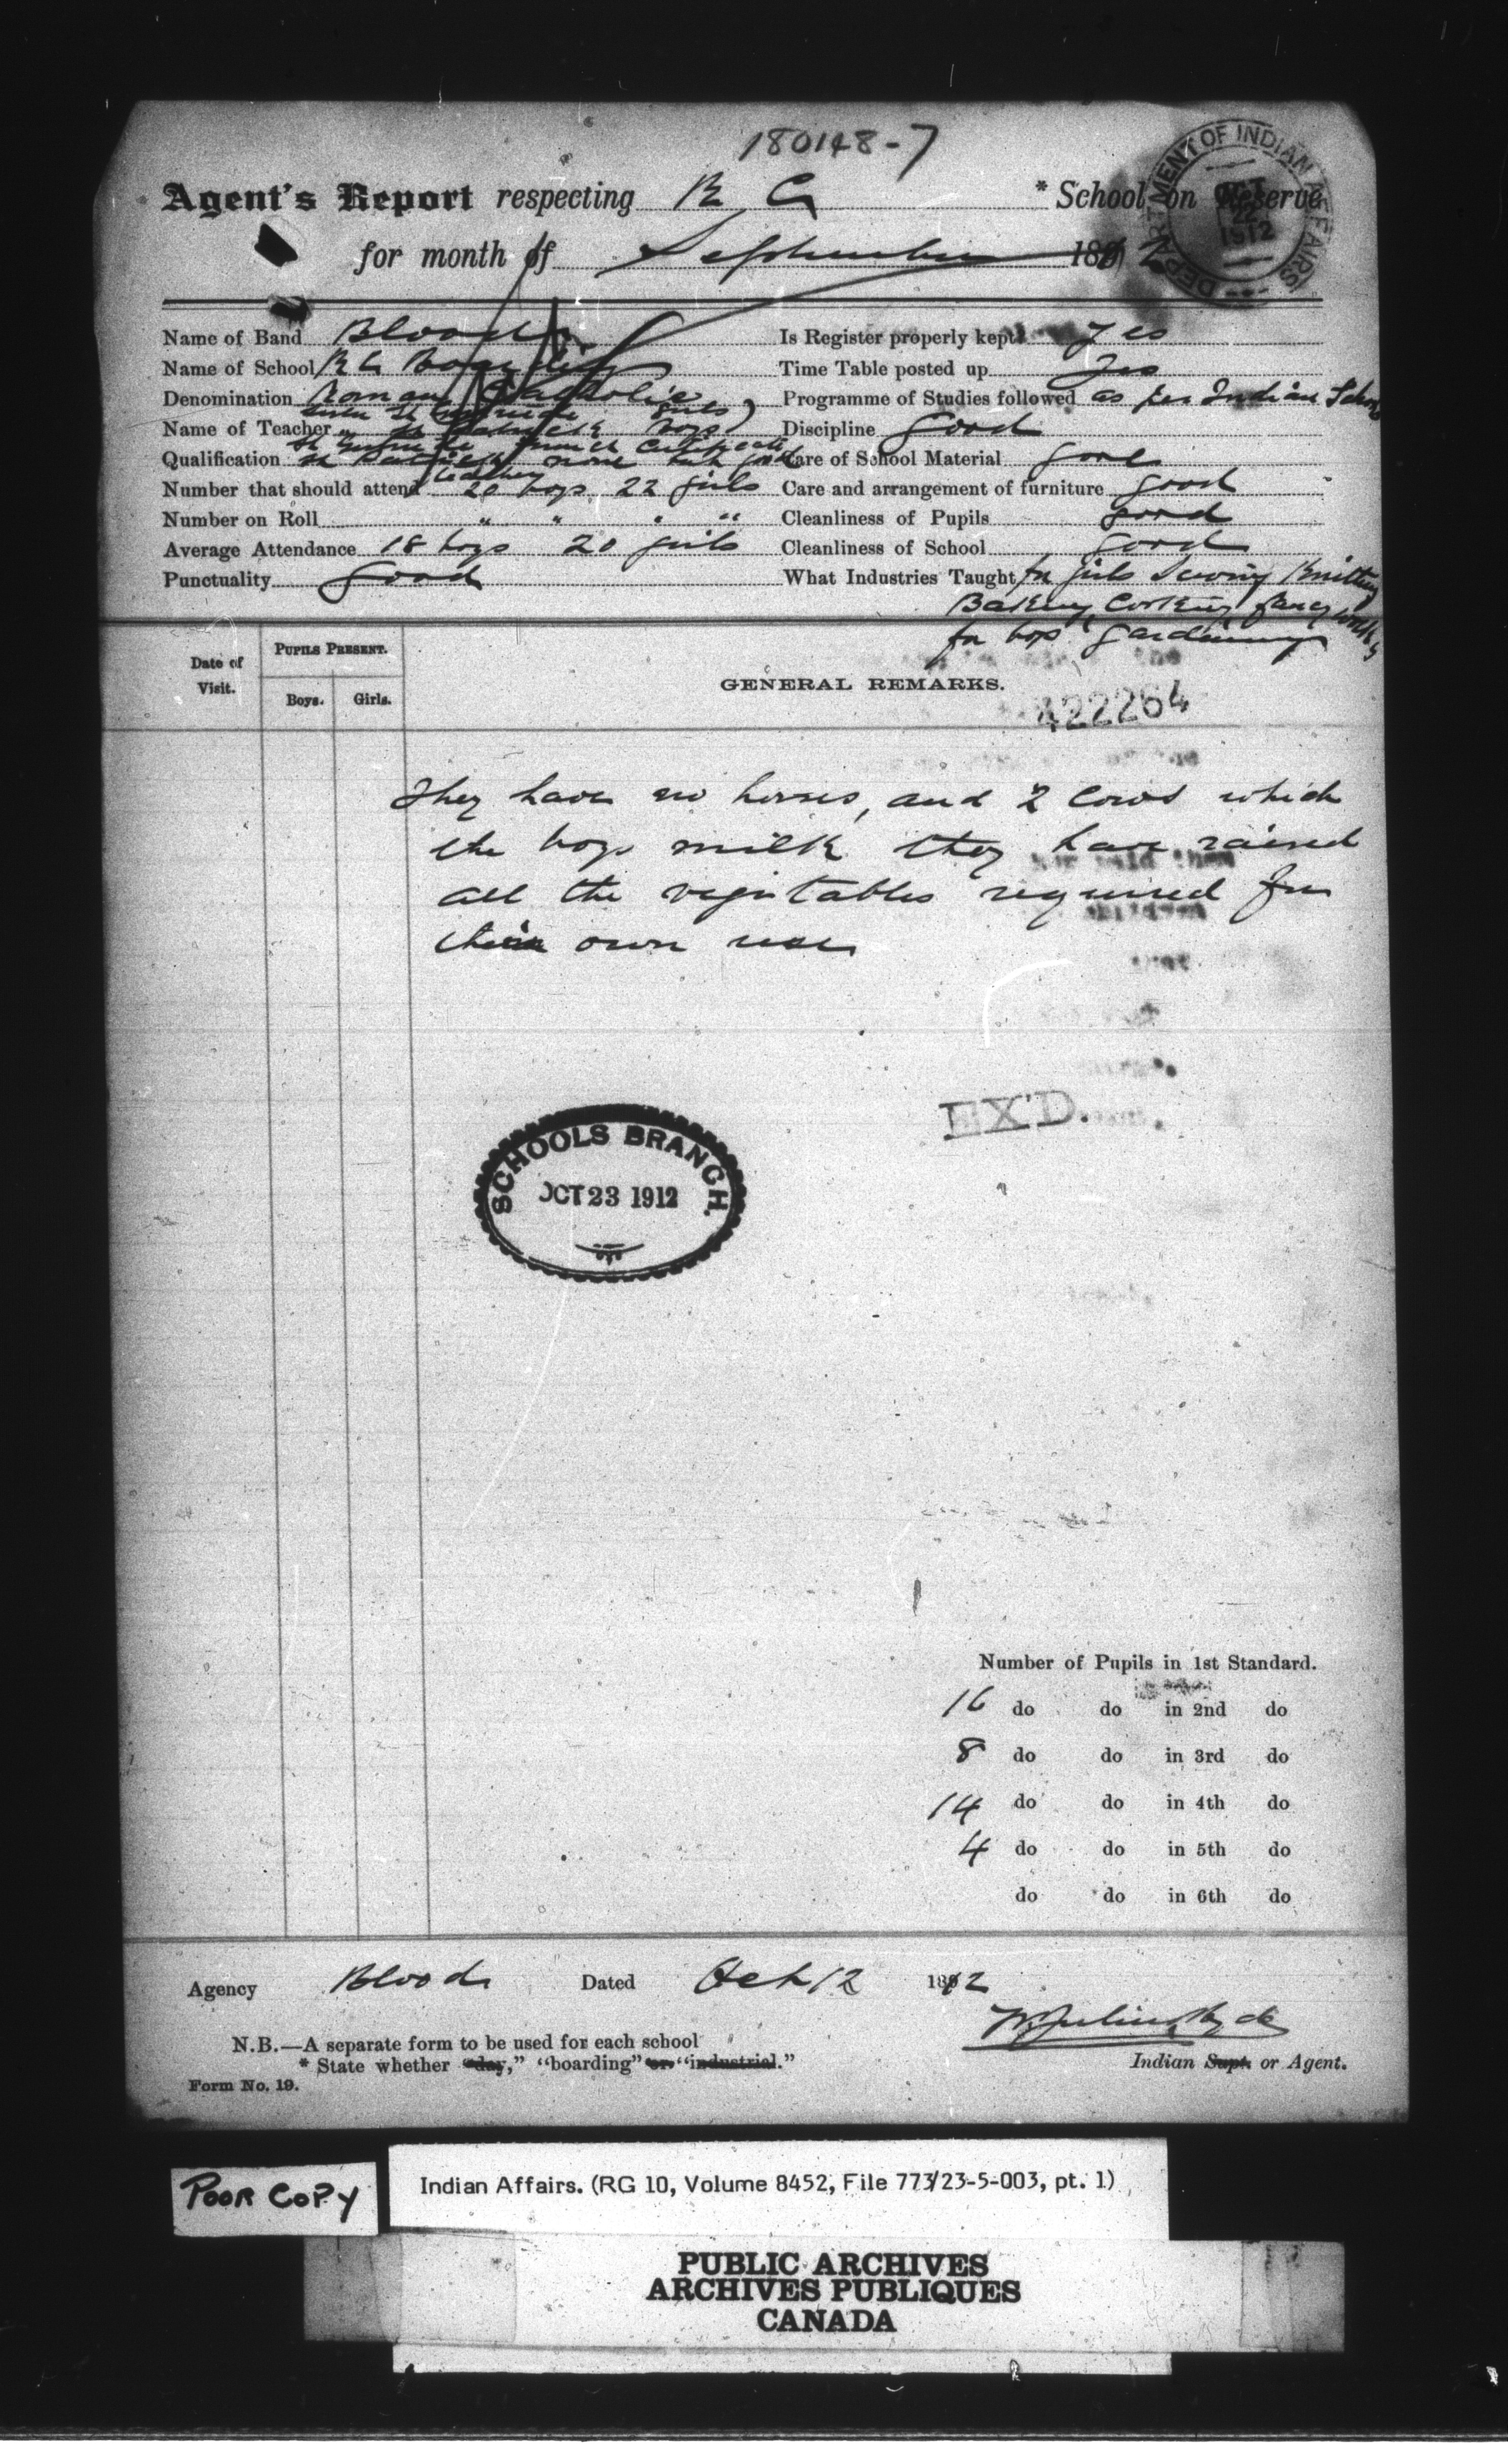 180148-7
Agent's Report respecting R C * School on Reserve
for month of September 1912
DEPARTMENT OF INDIAN AFFAIRS
OCT 22 1912
Name of Band Blood Is Register properly kept? Yes
Name of School R C Boarding Time Table posted up Yes
Denomination Roman Catholic Programme of Studies followed as per Indian Schools
Girls)
Name of Teacher St Patrick Boys Discipline Good
French Certificate
Qualification St Patrick none but good Care of School Material good
teacher
Number that should attend 20 boys 22 girls Care and arrangement of furniture good
Number on Roll " " " " Cleanliness of Pupils good
Average Attendance 18 boys 20 girls Cleanliness of School Good
Punctuality Good What Industries Taught for girls Sewing Knitting
Baking, Cooking, fancy work,
for boys gardening
Date of Visit. PUPILS PRESENT. Boys. Girls. GENERAL REMARKS.
422264
They have no horses, and 2 cows which
the boys milk they have raised
all the vegitables required for
their own use
EX'D.
SCHOOLS BRANCH.
OCT 23 1912
Number of Pupils in 1st Standard.
16 do do in 2nd do
8 do do in 3rd do
14 do do in 4th do
4 do do in 5th do
do do in 6th do
Agency Blood Dated Oct 12 1912
W Julius Hyde
N.B.—A separate form to be used for each school
* State whether "day," "boarding" or "industrial." Indian Supt. or Agent.
Form No. 19.
POOR COPY
Indian Affairs. (RG 10, Volume 8452, File 773/23-5-003, pt. 1)
PUBLIC ARCHIVES
ARCHIVES PUBLIQUES
CANADA